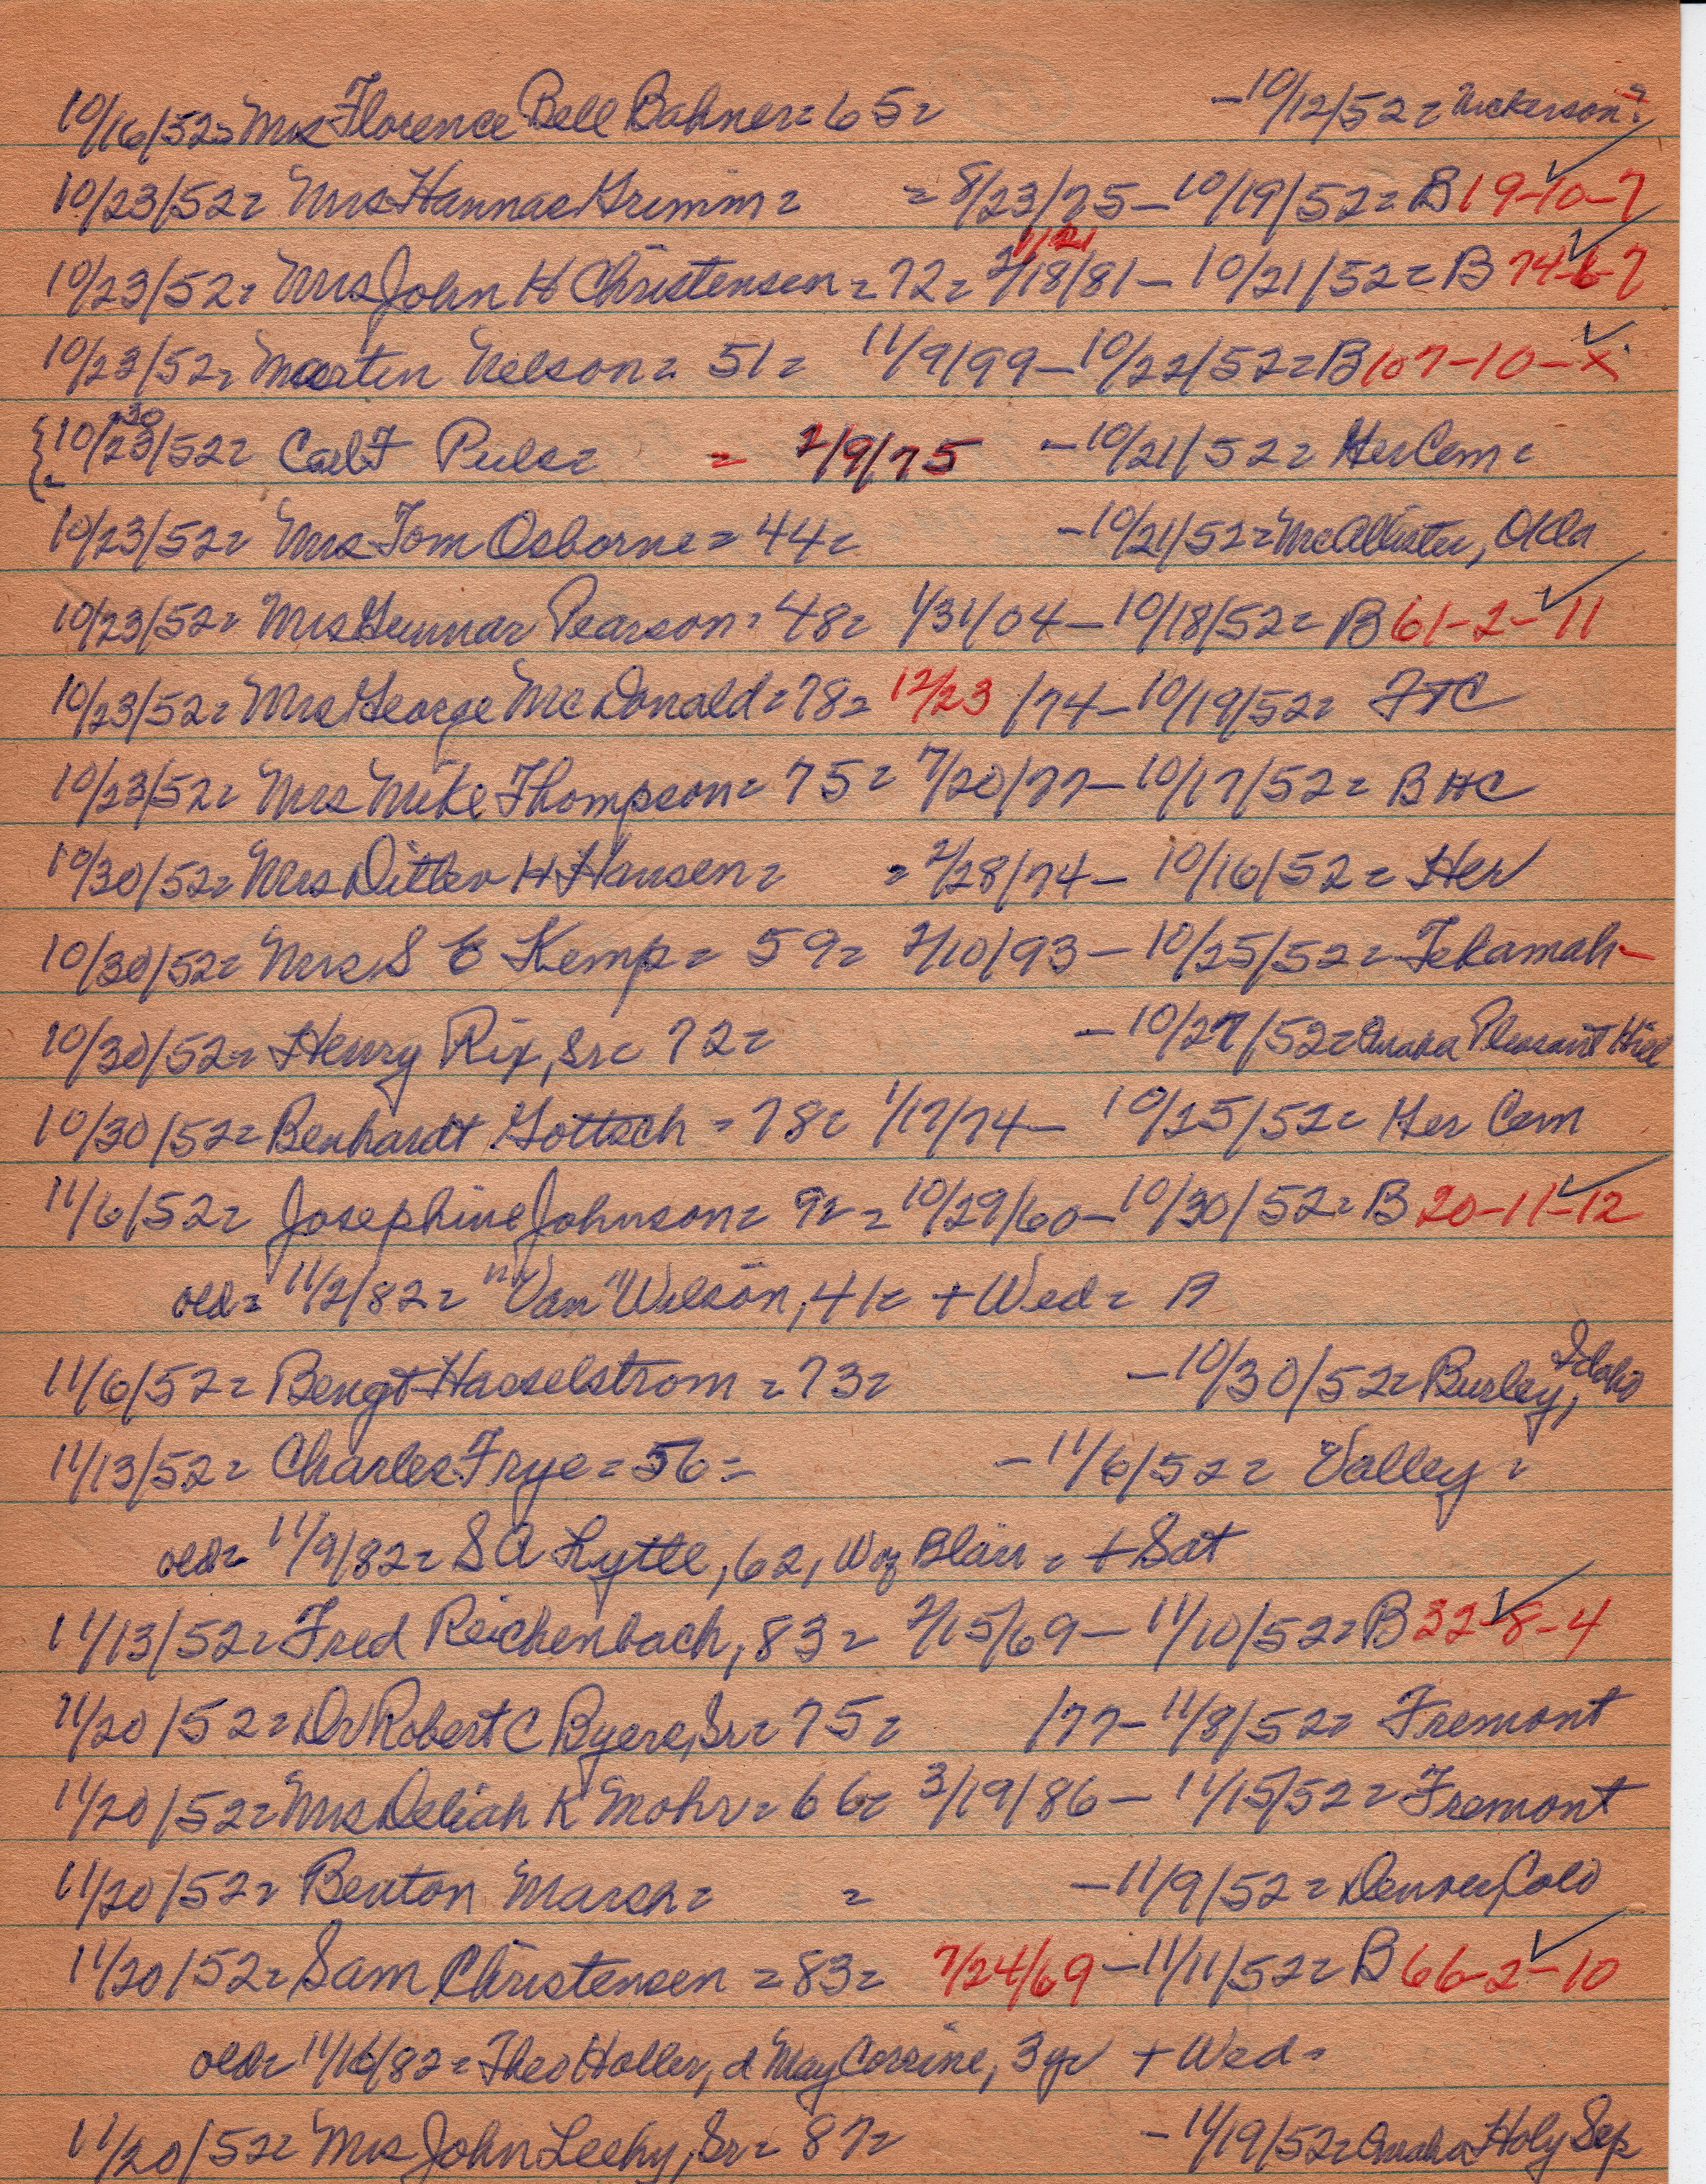 10/16/52= Mrs Florence Bell Bahner= 65= -10/12/52= Nickerson?
10/23/52= Mrs Hannas Grimm= = 8/23/75-10/19/52= B 19-10-7
1/21
10/23/52= Mrs John H Christensen= 72= 2/18/81- 10/21/52= B 74-6-7
10/23/52= Martin Nelson= 51= 11/9/99-10/22/52= B 107-10-X
30
{10/23/52= Carl F Puls= = 2/9/75 -10/21/52= Her Cem=
10/23/52= Mrs Tom Osborne= 44= -10/21/52= McAllister, Okla
10/23/52= Mrs Gunnar Pearson= 48= 1/31/04-10/18/52= B 61-2-11
10/23/52= Mrs George McDonald= 78= 12/23/74-10/19/52= FTC
10/23/52= Mrs Mike Thompson= 75= 7/20/77-10/17/52= BHC
10/30/52= Mrs Ditlev H Hansen= = 2/28/74- 10/16/52= Her
10/30/52= Mrs S E Kemp= 59= 2/10/93-10/25/52= Tekamah-
10/30/52= Henry Rix, Sr= 72= -10/27/52= Omaha Pleasant Hill
10/30/52= Benhardt Gottsch= 78= 1/17/74- 10/25/52= Her Cem
11/6/52= Josephine Johnson= 92= 10/29/60-10/30/52= B 20-11-12
old= 11/2/82= "Van" Wilson, 41= + Wed= B
11/6/52= Bengt Hasselstrom= 73= -10/30/52= Burley, Idaho
11/13/52= Charles Frye= 56= -11/6/52= Valley=
old= 11/9/82= S A Lytle, 62, W of Blair= + Sat
11/13/52= Fred Reichenbach, 83= 2/15/69-11/10/52= B 22-8-4
11/20/52= Dr Robert C Byers, Sr= 75= /77-11/8/52= Fremont
11/20/52= Mrs Deliah K Mohr= 66= 3/19/86-11/15/52= Fremont
11/20/52= Benton Marsh= = -11/9/52= Denver, Colo
11/20/52= Sam Christensen= 83= 7/24/69-11/11/52= B 66-2-10
old= 11/16/82= Theo Haller, d May Corrine, 3yr + Wed=
11/20/52= Mrs John Leehy, Sr= 87= -11/19/52= Omaha Holy Sep